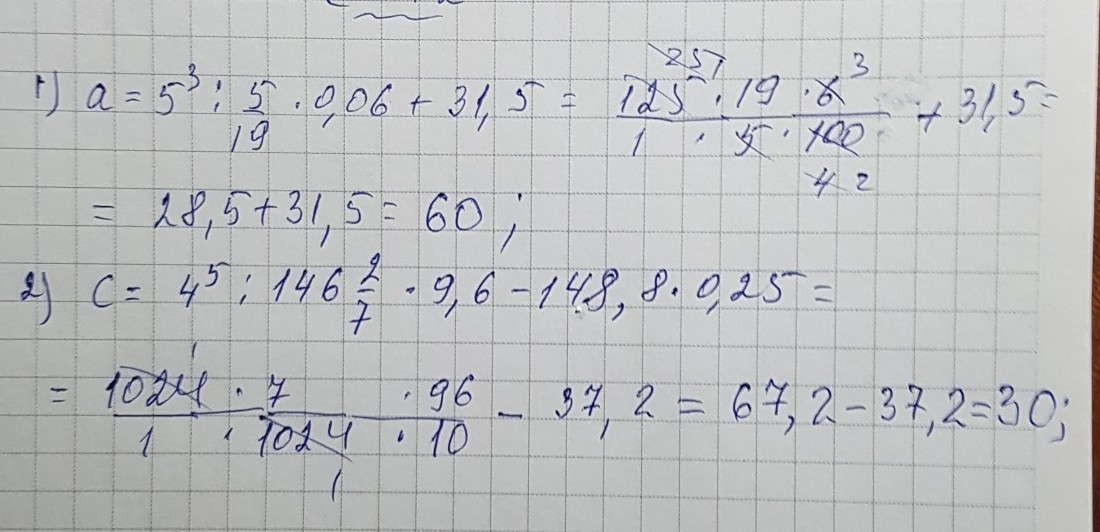 1) a = 5³ : 5/19 · 0,06 + 31,5 = 125 · 19 · 6 / 1 · 5 · 100 + 31,5 =
25 1 3
4 2
= 28,5 + 31,5 = 60 ;
2) C = 4⁵ : 146 2/7 · 9,6 - 148,8 · 0,25 =
= 1024 · 7 · 96 / 1 · 1024 · 10 - 37,2 = 67,2 - 37,2 = 30;
1
1